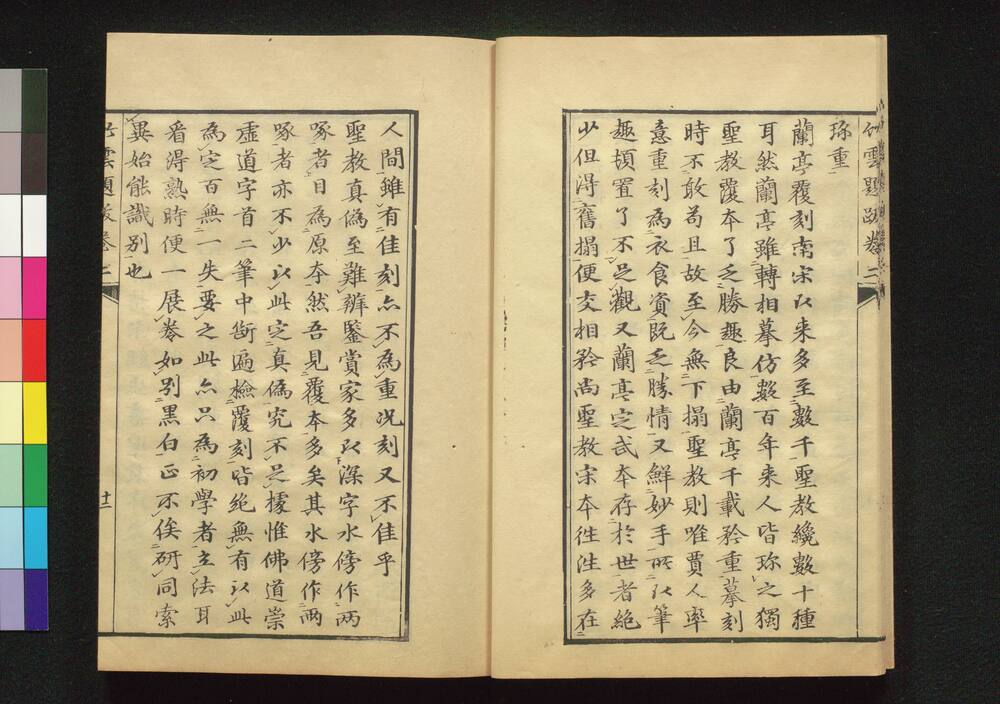 竹雲題跋卷二
珎重
蘭亭覆刻南宋以来多至數千聖教纔數十種
耳然蘭亭雖轉相摹仿數百年来人皆珎之獨
聖教覆本了乏勝趣良由蘭亭千載矜重摹刻
時不敢苟且故至今無下搨聖教則唯賈人率
意重刻為衣食資既乏勝情又鮮妙手所以筆
趣頓置了不足觀又蘭亭定武本存於世者絕
少但得舊搨便交相矜尚聖教宋本徃徃多在
人間雖有佳刻亦不為重況刻又不佳乎
聖教真偽至難辨鑒賞家多以深字水傍作兩
啄者目為原本然吾見覆本多矣其水傍作兩
啄者亦不少以此定真偽究不足據惟佛道崇
虛道字首二筆中斷遍檢覆刻皆絕無有以此
為定百無一失要之此亦只為初學者立法耳
看得熟時便一展卷如別黑白正不俟研同索
異始能識別也
竹雲題跋卷二
十二